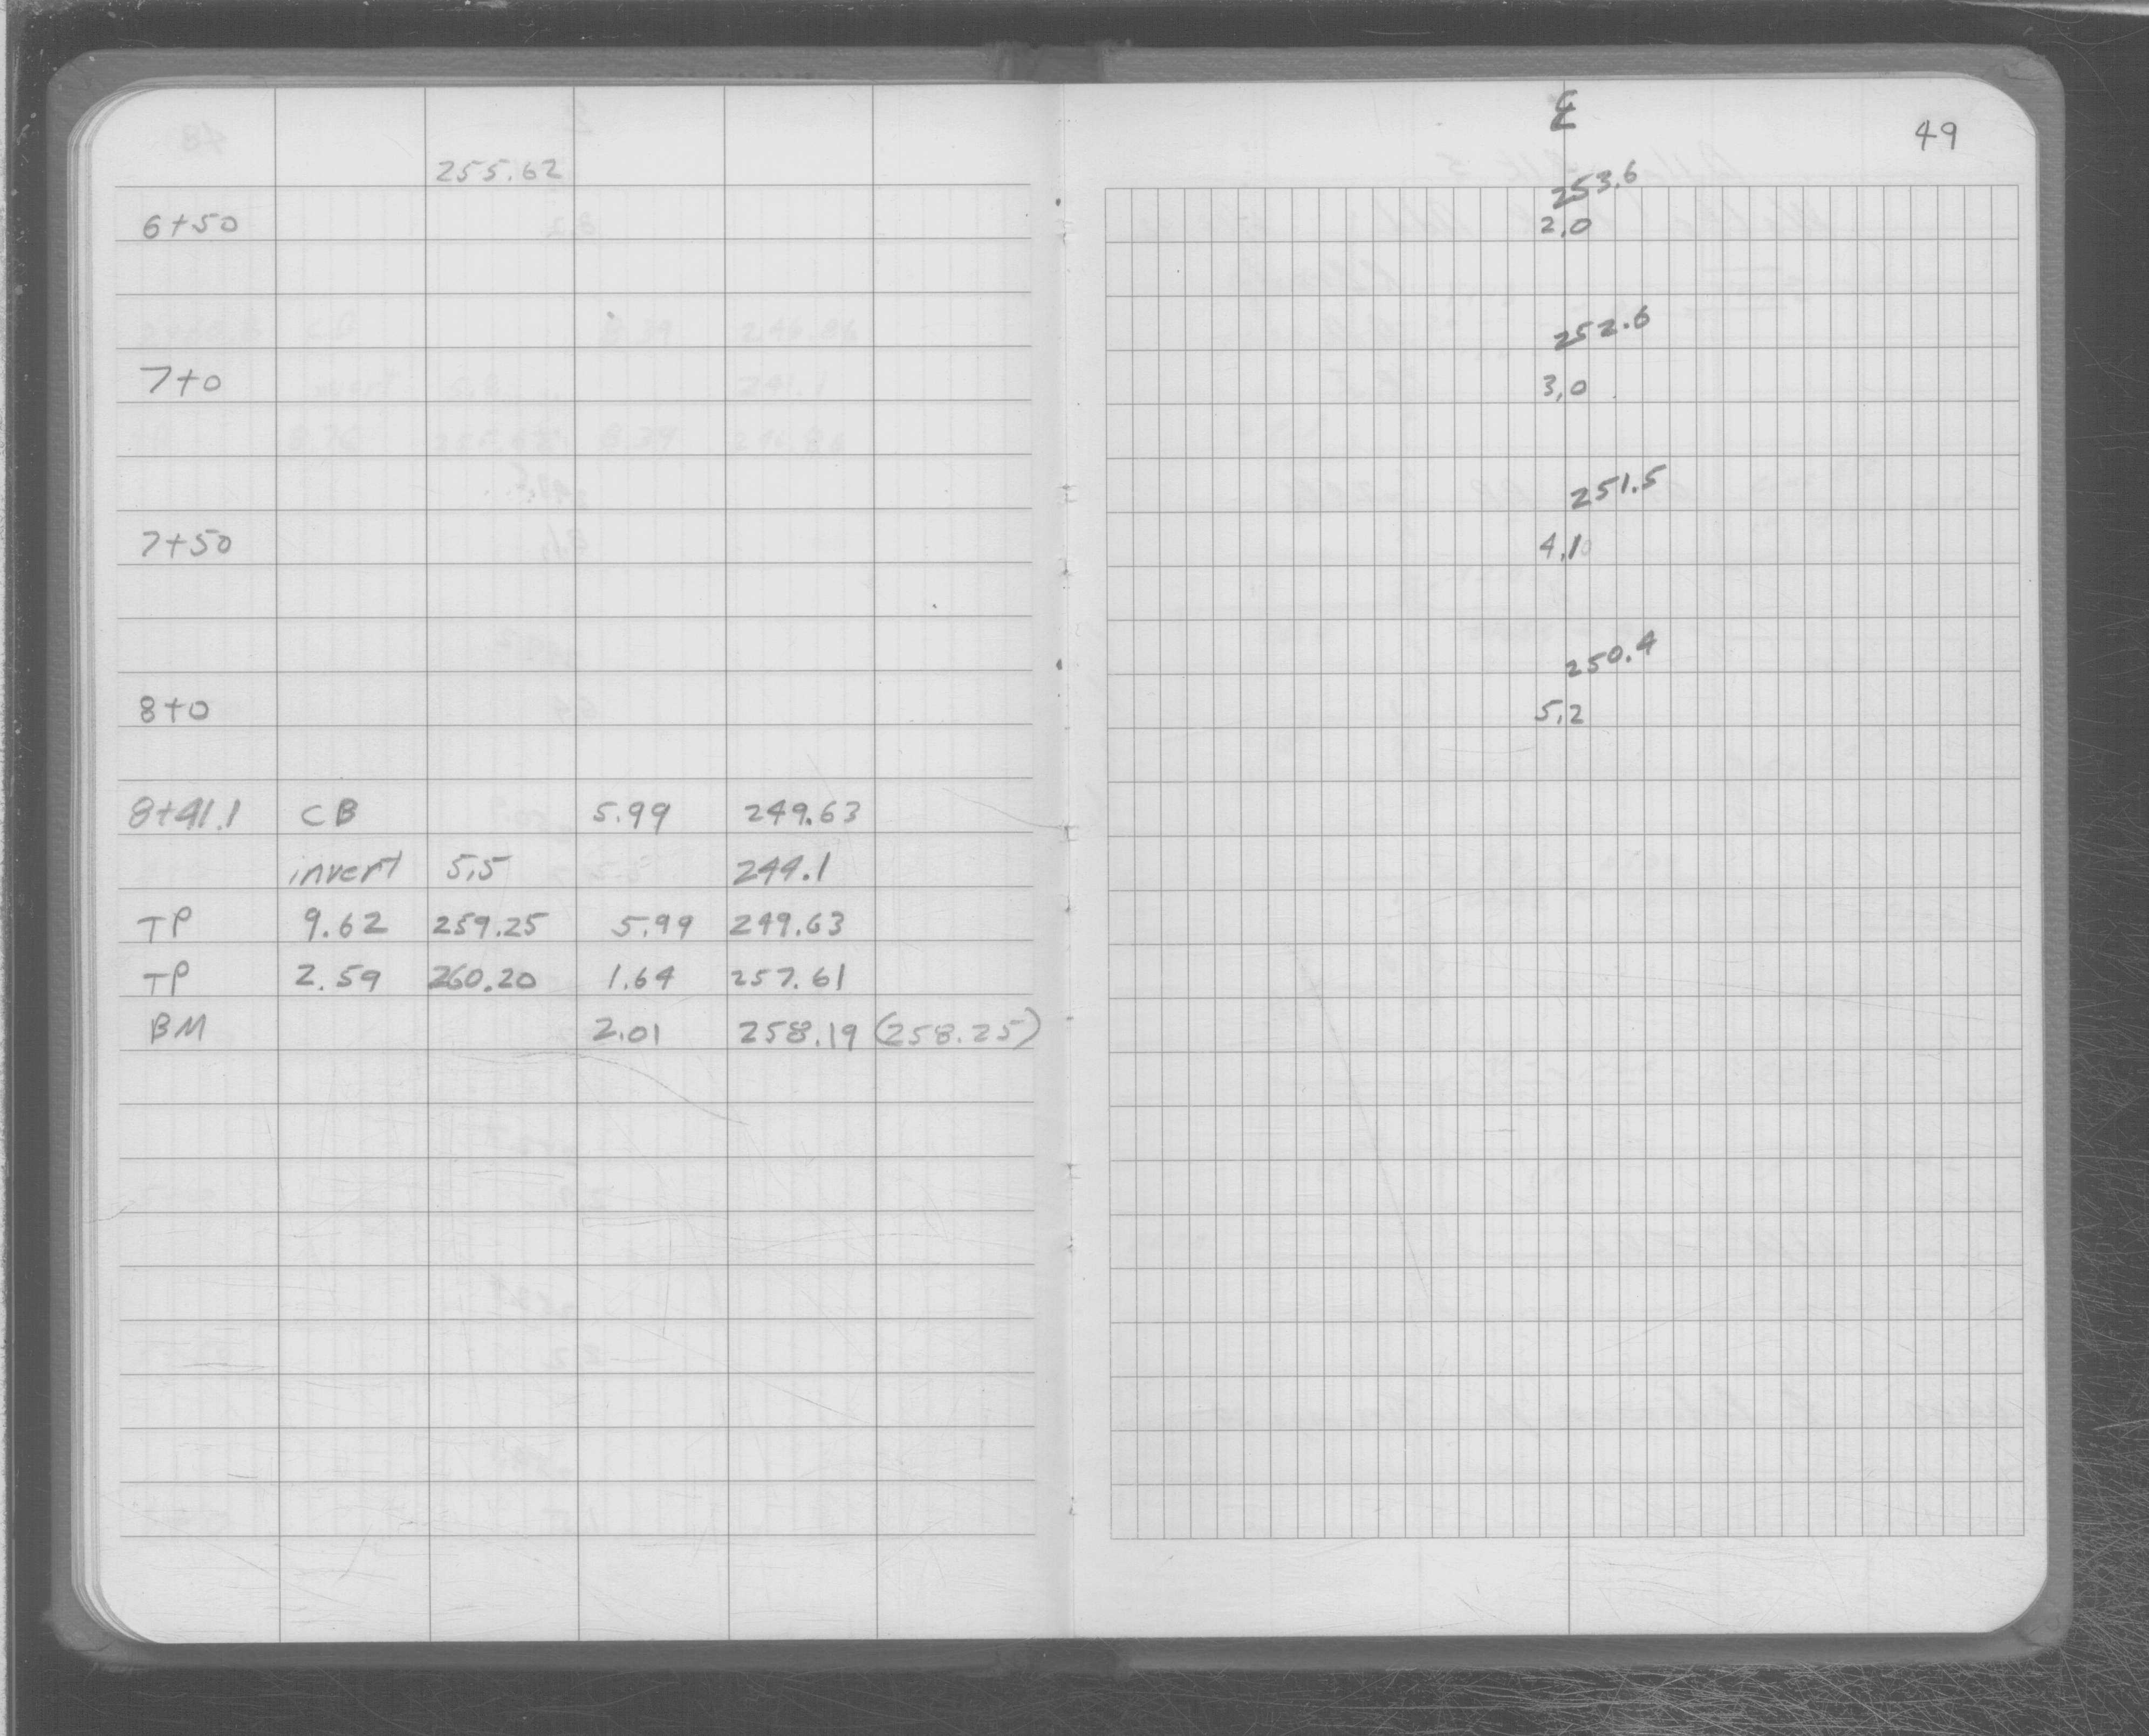 49
℄
255.62
253.6
6+50 2.0
252.6
7+0 3.0
251.5
7+50 4.1
250.4
8+0 5.2
8+41.1 CB 5.99 249.63
invert 5.5 244.1
TP 9.62 259.25 5.99 249.63
TP 2.59 260.20 1.64 257.61
BM 2.01 258.19 (258.25)